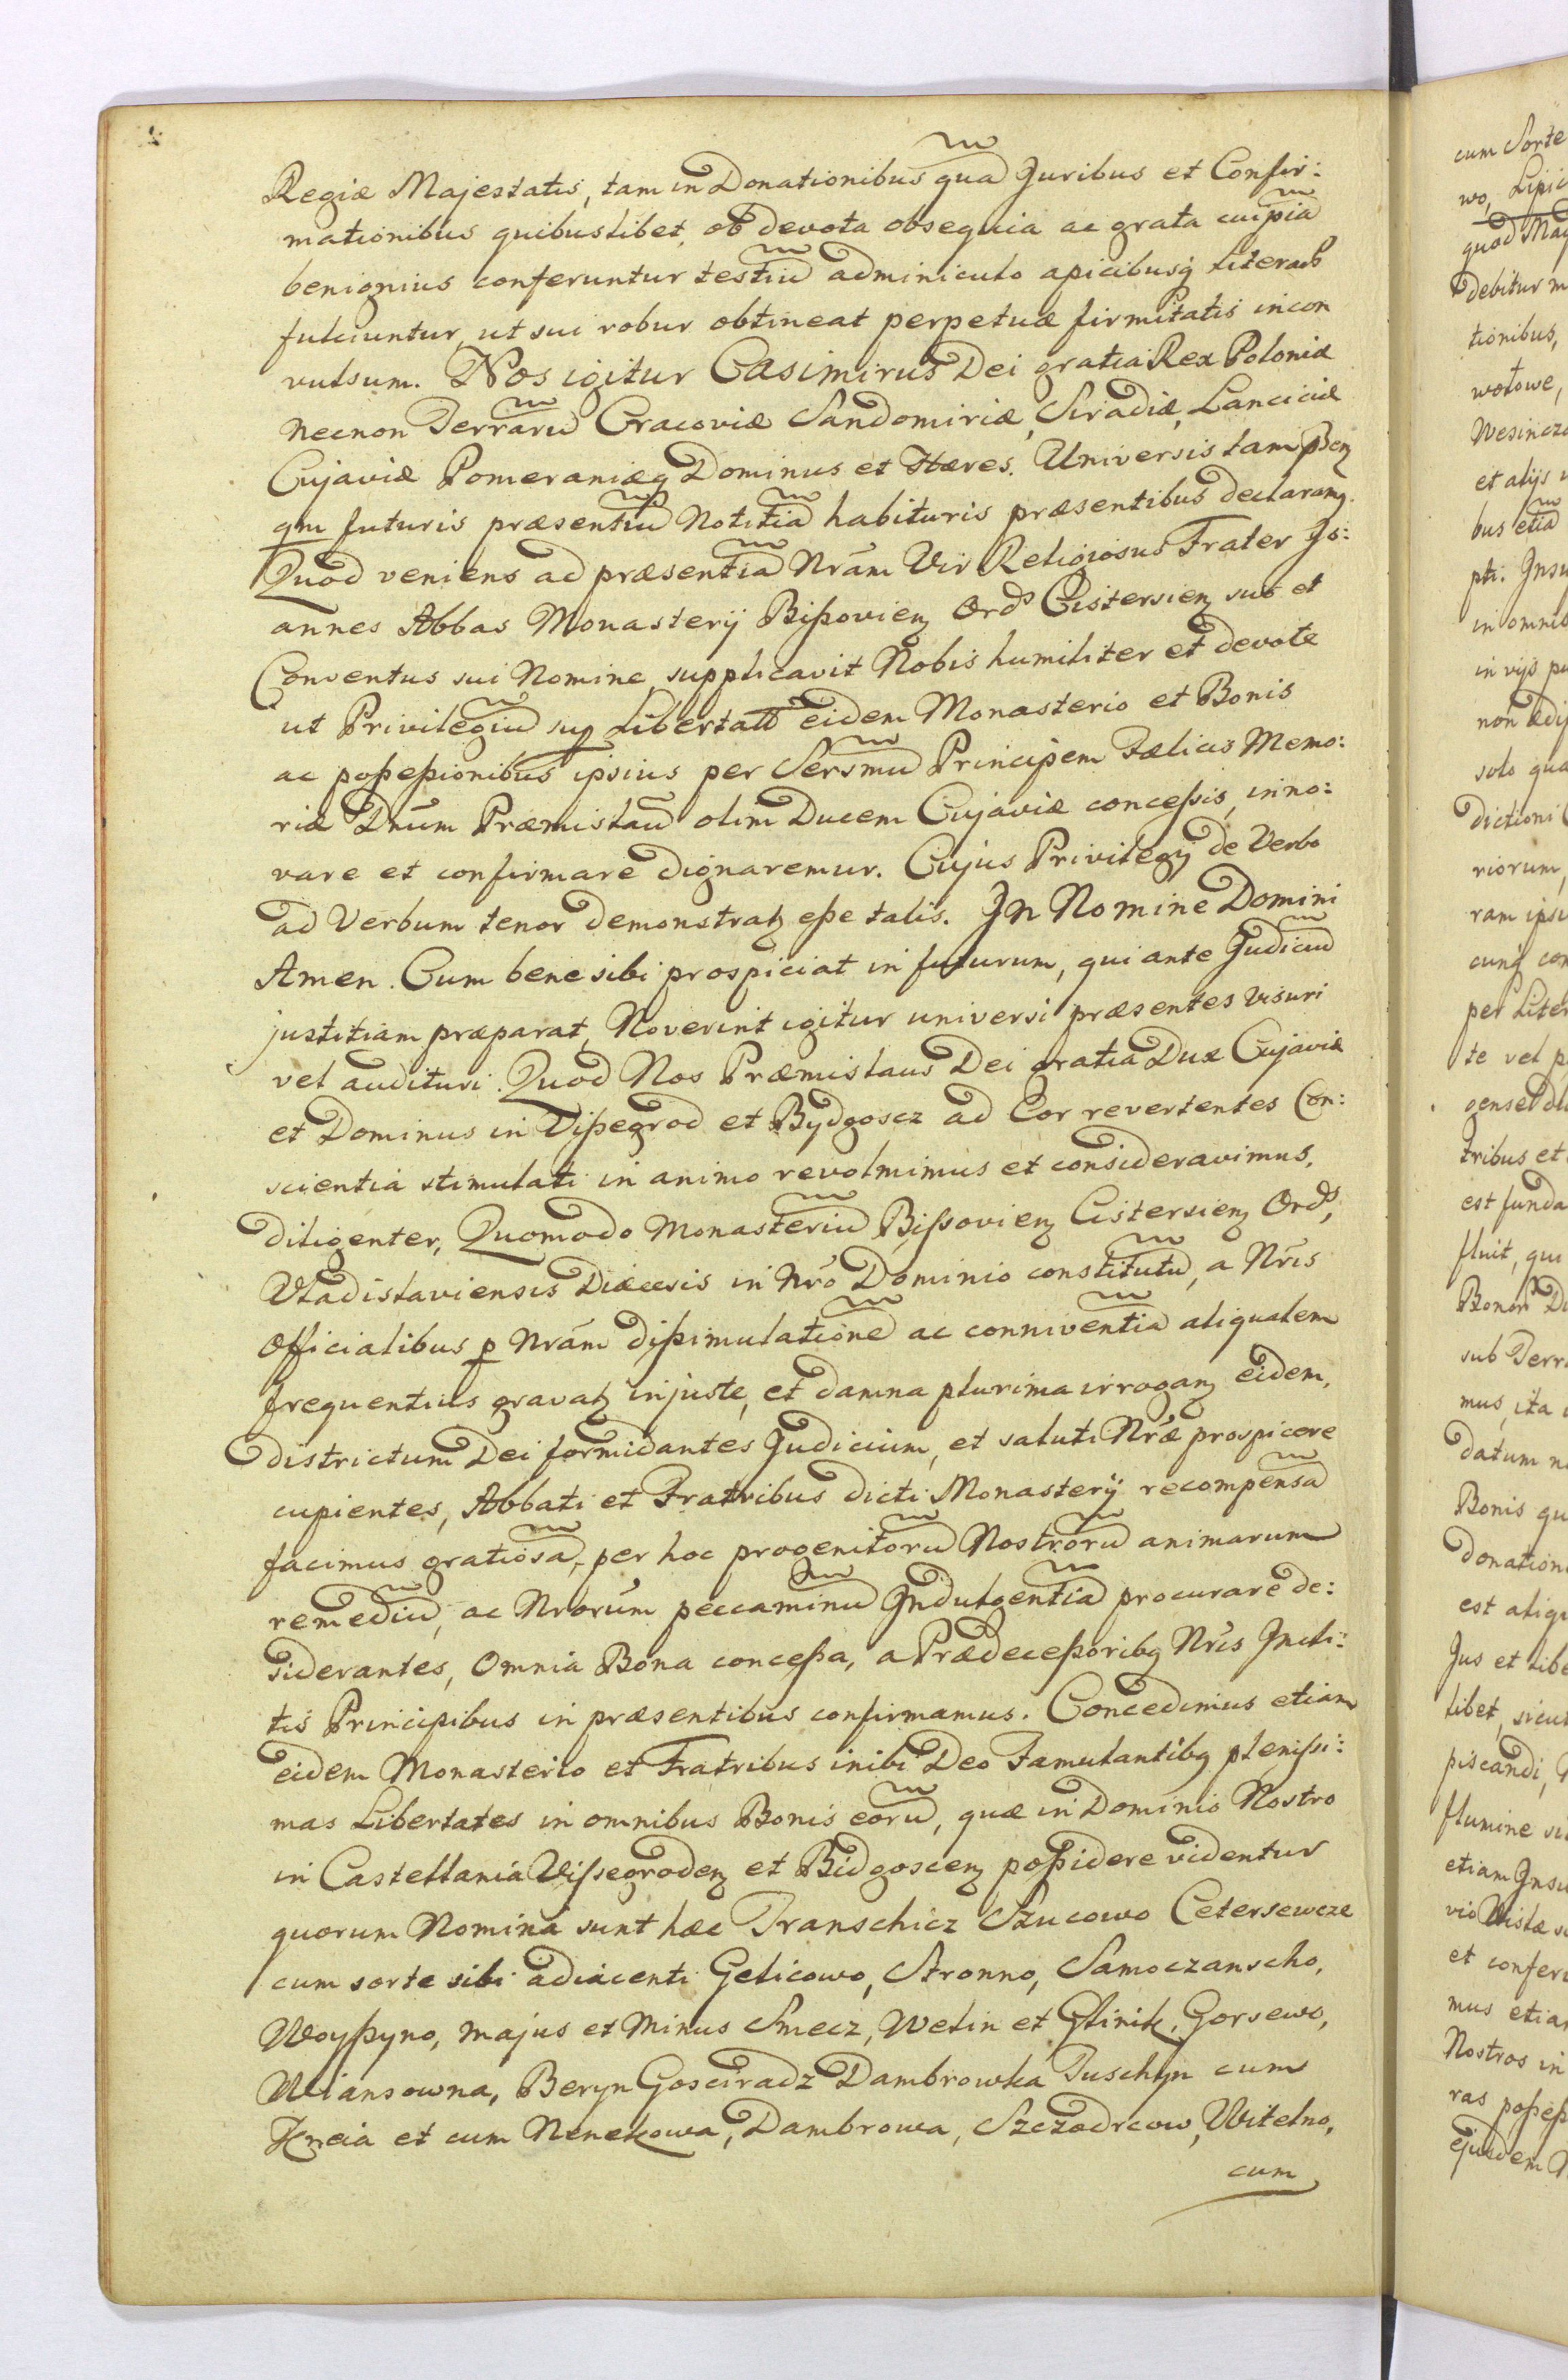 Regiæ Majestatis, tam in Donationibus qua Juribus et Confir:
mationibus quibuslibet, ob devota obsequia ac grata cuipiā
benignius conferuntur testiū adminiculo apicibusq Literar
fulciuntur, ut sui robur obtineat perpetuæ firmitatis incon
vulsum. Nos igitur Casimirus Dei gratia Rex Poloniæ
necnon Terrarū Cracoviæ Sandomiriæ, Siradiæ, Lanciciæ
Cujaviæ Pomeraniæq Dominus et Hæres. Universis tam
qm futuris præsentiū Notitiā habituris præsentibus declaramq.
Quod veniens ad præsentiā Nrām Vir Religiosus Frater Jo:
annes Abbas Monasterij Bißovienq Ord͠s Cisterienq sub et
Conventus sui Nomine, supplicavit Nobis humiliter et devote
ut Privilegiū sup Libertatb eidem Monasterio et Bonis
ac poßeßionibus ipsius per Sersmū Principem Fælicis Memo:
riæ Dnūm Præmislaū olim Ducem Cujaviæ conceßis, inno:
vare et confirmare dignaremur. Cujus Privilegij de Verbo
ad Verbum tenor demonstratq eße talis. Jn Nomine Domini
Amen. Cum bene sibi prospiciat in futurum, qui ante Judiciū
justitiam præparat, Noverint igitur universi præsentes visuri
vel audituri. Quod Nos Præmislaus Dei gratia Dux Cujaviæ
et Dominus in Vißegrod et Bydgoscz ad Cor revertentes Con:
scientia stimulati in animo revolmimus et consideravimus,
diligenter, Quomodo Monasteriū Bißovienq Cistersienq Ord͠s,
Vladislaviensis Diæcesis in Nrō Dominio constitutū, a Nrīs
Officialibus p Nrām dißimulationē ac conniventiā aliqualem
frequentius gravatq injuste, et damna plurima irrogamq eidem,
districtum Dei formidantes Judicium, et saluti Nræ prospicere
cupientes, Abbati et Fratribus dicti Monasterij recompensā
facimus gratiosā, per hoc progenitorū Nostrorū animarum
remediū, ac Nrorūm peccaminū Jndulgentiā procurare de:
siderantes, Omnia Bona conceßa, a Prædeceßoribq Nrīs Jncli:
tis Principibus in præsentibus confirmamus. Concedimus etiam
eidem Monasterio et Fratribus inibi Deo Famulantibq plenißi:
mas Libertates in omnibus Bonis eorū, quæ in Dominio Nostro
in Castellania Vißegrodenq et Bidgoscienq poßidere videntur
quorum Nomina sunt hæc Transchicz Szucowo Cetersewcze
cum sorte sibi adiacenti Gelicowo, Stronno, Samoczanscho,
Woyßyno, majus et Minus Smecz, Welin et Glinik, Gorsewo,
Wiansowna, Beryn Gosciradz Dambrowka Tuschyn cum
Hneia et cum Nenekowa, Dambrowa, Szczodrcow, Witelno,
cum
cum Sorte
wo, Lipic
quod Mag
debitur m
tionibus,
wotowe,
Wesincze
et alijs
bus etiā
pti. Jnsu
in omnib
in vijs pu
non ædi
solo qua
dictioni
riorum,
ram ipsi
cunq con
per Liter
te vel p
tribus et
est funda
fluit, qui
sub Terr
mus, ita
datum n
Bonis qu
donation
est aliqu
Jus et libe
libet, sicut
piscandi,
flumine su
etiam Jnsu
vio Wislæ
et confer
mus etiam
Nostros in
ras poßeß
ejusdem